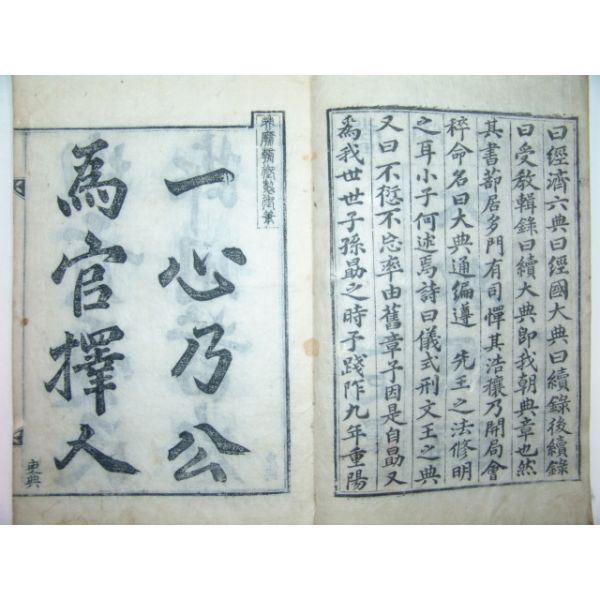 曰經濟六典曰經國大典曰續錄後續錄
曰受教輯錄曰續大典即我朝典章也然
其書莭居多門有司憚其浩穰乃開局會
稡命名曰大典通編遵 先王之法修明
之耳小子何述焉詩曰儀式刑文王之典
又曰不愆不忘率由舊章予因是自勗又
爲我世世子孫勗之時予踐阼九年重陽
一心乃公
爲官擇人
吏典